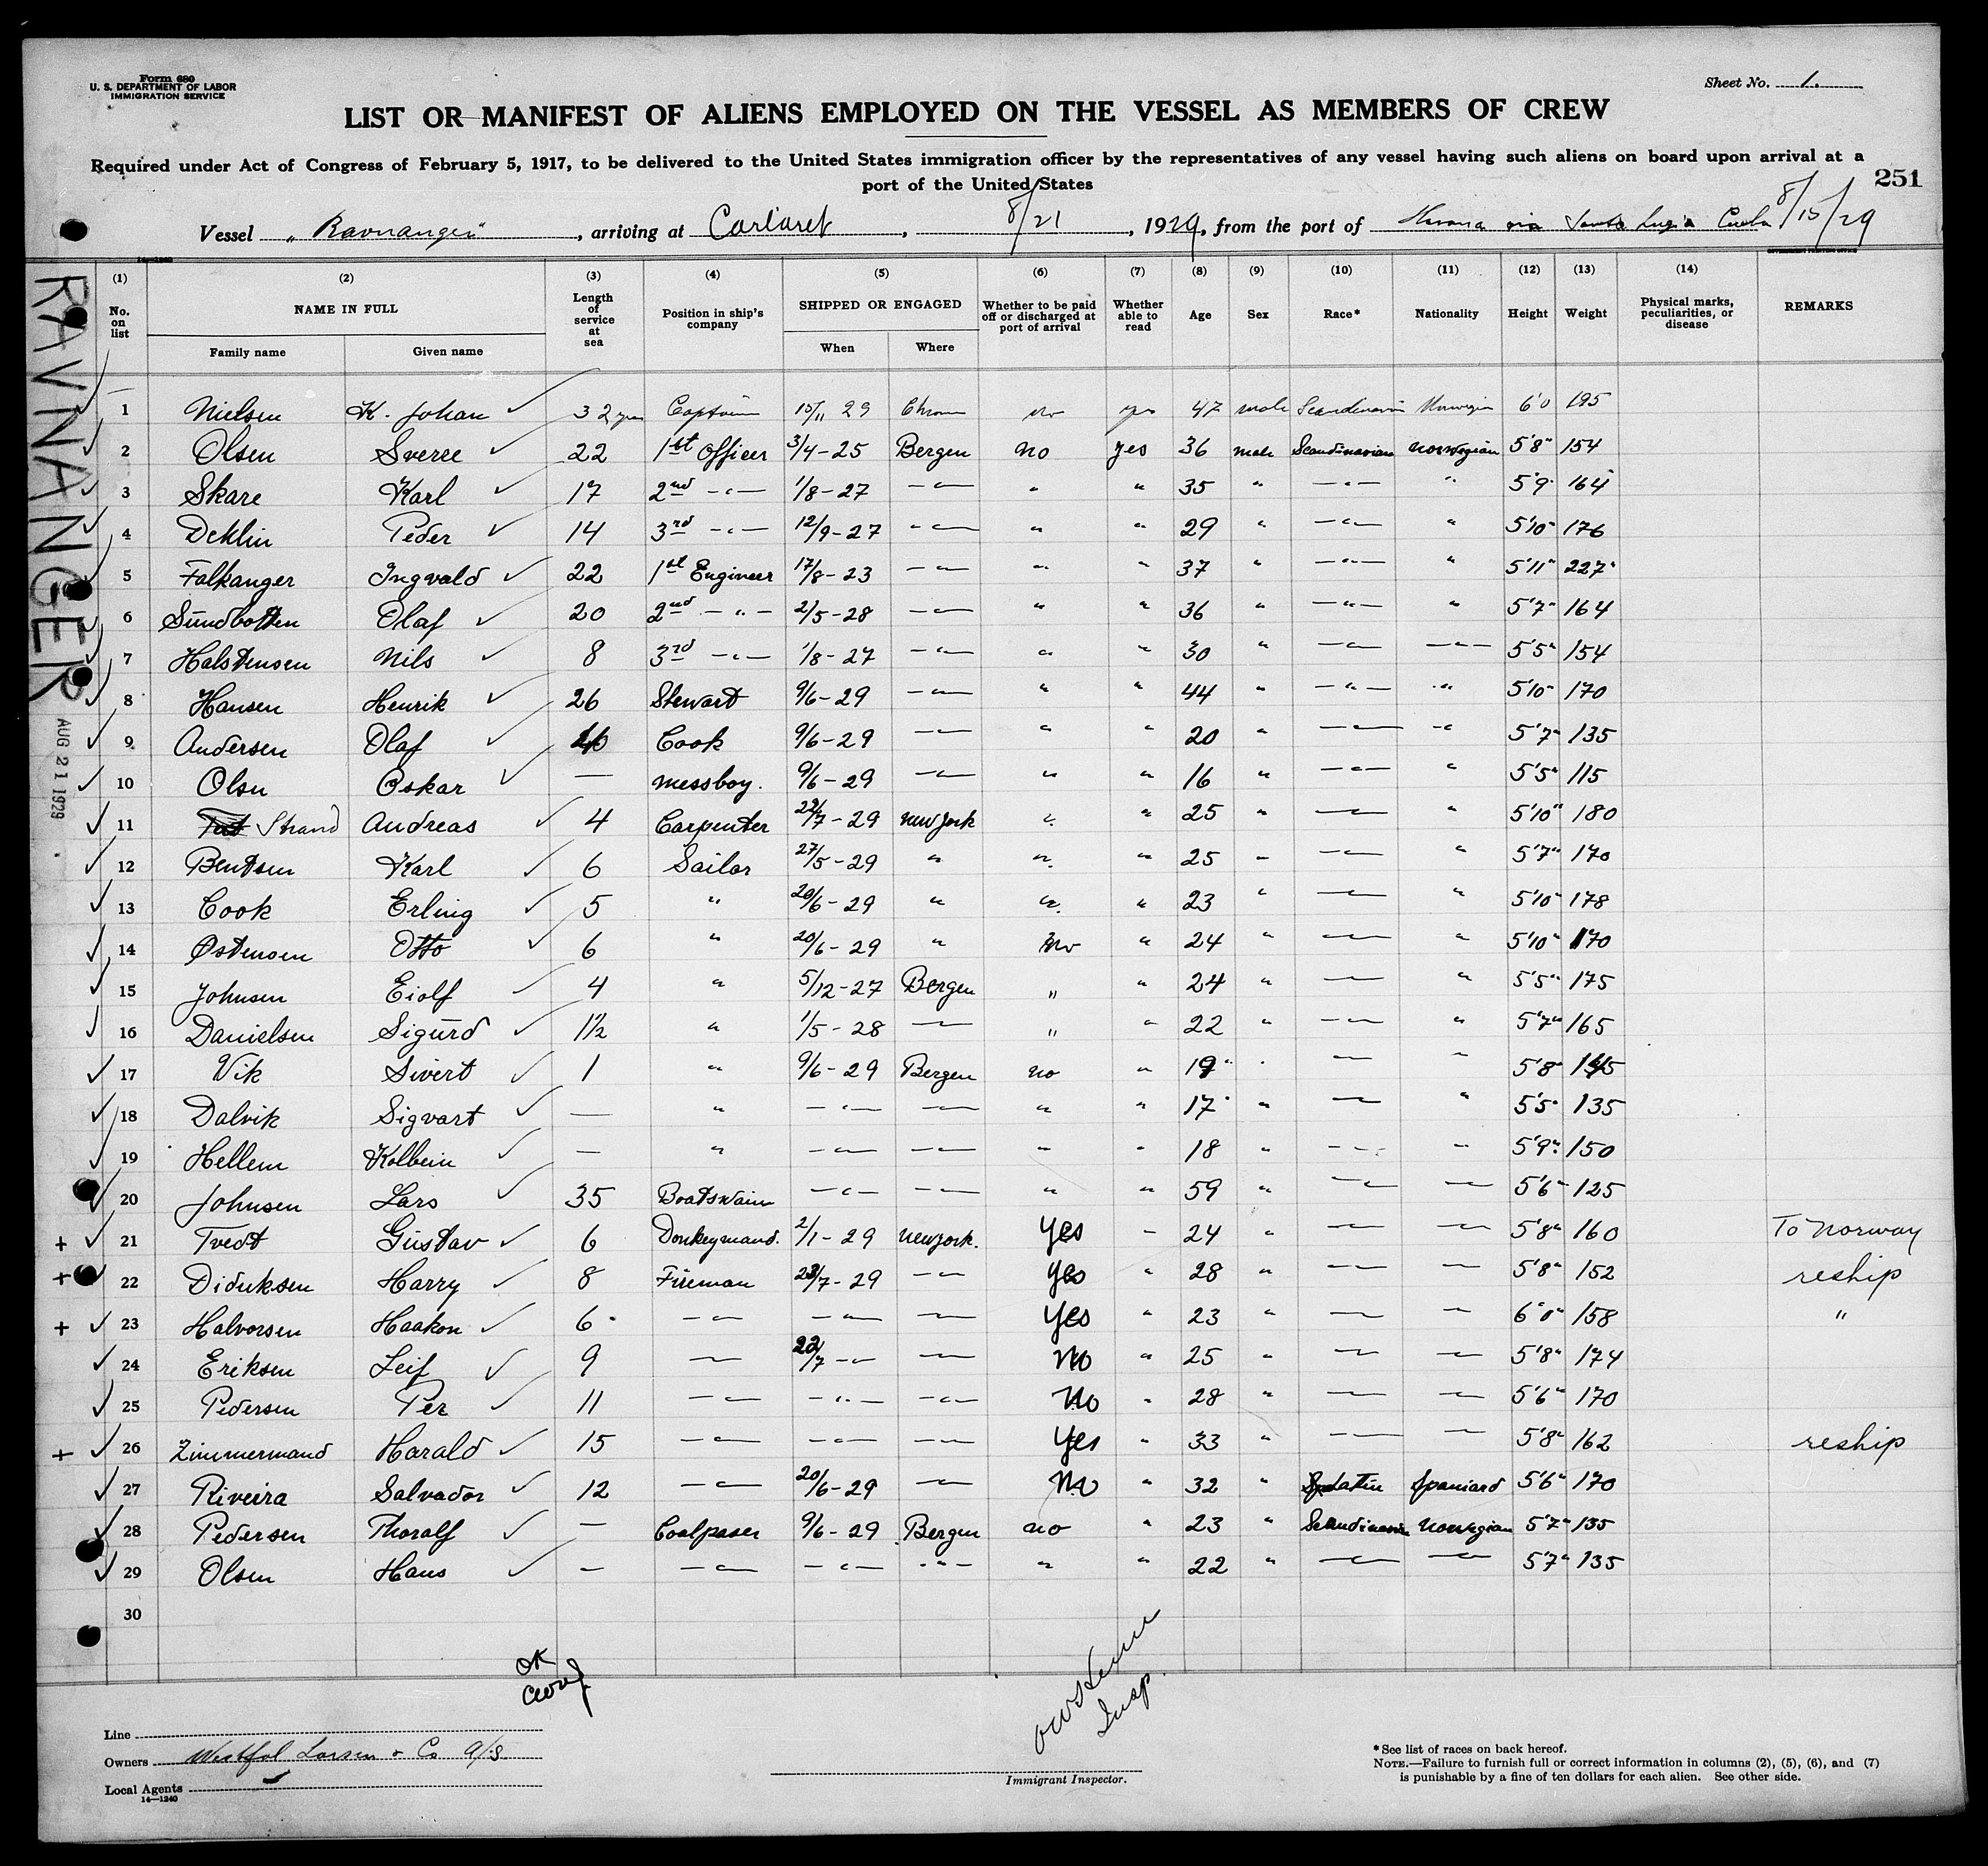 Form 680
U. S. DEPARTMENT OF LABOR
IMMIGRATION SERVICE
Sheet No. 1.
LIST OR MANIFEST OF ALIENS EMPLOYED ON THE VESSEL AS MEMBERS OF CREW
Required under Act of Congress of February 5, 1917, to be delivered to the United States immigration officer by the representatives of any vessel having such aliens on board upon arrival at a
port of the United States
251
Vessel "Ravnanger", arriving at Carteret, 8/21, 1929, from the port of Havana via Santa Lucia Cuba 8/15/29
RAVNANGER
AUG 21 1929
(1) (2) (3) (4) (5) (6) (7) (8) (9) (10) (11) (12) (13) (14)
No. on list NAME IN FULL Length of service at sea Position in ship's company SHIPPED OR ENGAGED Whether to be paid off or discharged at port of arrival Whether able to read Age Sex Race* Nationality Height Weight Physical marks, peculiarities, or disease REMARKS
Family name Given name When Where
1 Nielsen K. Johan 32 yrs Captain 15/11 29 no yes 47 male Scandinavian Norwegian 6'0 195
2 Olsen Sverre 22 1st Officer 3/4-25 Bergen no yes 36 male Scandinavian Norwegian 5'8" 154
3 Skare Karl 17 2nd -"- 1/8-27 -"- " " 35 " -"- " 5'9" 164
4 Deklin Peder 14 3rd -"- 12/9-27 -"- " " 29 " -"- " 5'10" 176
5 Falkanger Ingvald 22 1st Engineer 17/8-23 -"- " " 37 " -"- " 5'11" 227
6 Sundbotten Olaf 20 2nd -"- 2/5-28 -"- " " 36 " -"- " 5'7" 164
7 Halstensen Nils 8 3rd -"- 1/8-27 -"- " " 30 " -"- -"- 5'5" 154
8 Hansen Henrik 26 Stewart 9/6-29 -"- " " 44 " -"- " 5'10" 170
9 Andersen Olaf Cook 9/6-29 -"- " " 20 " -"- -" 5'7" 135
10 Olsen Oskar — messboy. 9/6-29 -"- " " 16 " -"- " 5'5" 115
11 Strand Andreas 4 Carpenter 22/7-29 New York " " 25 " -"- " 5'10" 180
12 Bentsen Karl 6 Sailor 27/5-29 " " " 25 " -"- " 5'7" 170
13 Cook Erling 5 " 20/6-29 " " " 23 " -"- " 5'10" 178
14 Østensen Otto 6 " 20/6-29 " No " 24 " -"- " 5'10" 170
15 Johnsen Eiolf 4 " 5/12-27 Bergen " " 24 " -"- " 5'5" 175
16 Danielsen Sigurd 1½ " 1/5-28 -"- " " 22 " -"- " 5'7" 165
17 Vik Sivert 1 " 9/6-29 Bergen no " 19 " -"- " 5'8" 145
18 Dalvik Sigvart — " -"- -"- " " 17 " -"- " 5'5" 135
19 Hellem Kolbein — " -"- -"- " " 18 " -"- " 5'9" 150
20 Johnsen Lars 35 Boatswain -"- -"- " " 59 " -"- -"- 5'6" 125
+ 21 Tvedt Gustav 6 Donkeymand. 2/1-29 New York. Yes " 24 " -"- -"- 5'8" 160 To Norway
+ 22 Didriksen Harry 8 Fireman 23/7-29 -"- Yes " 28 " -"- -"- 5'8" 152 reship
+ 23 Halvorsen Haakon 6 -"- -"- -"- Yes " 23 " -"- -"- 6'0" 158 "
24 Eriksen Leif 9 -"- 22/7 -"- -"- No " 25 " -"- -"- 5'8" 174
25 Pedersen Per 11 -"- -"- -"- No " 28 " -"- -"- 5'6" 170
+ 26 Zimmermand Harald 15 -"- -"- -"- Yes " 33 " -"- -"- 5'8" 162 reship
27 Riveira Salvador 12 -"- 20/6-29 -"- No " 32 " Latin Spaniard 5'6" 170
28 Pedersen Thoralf — Coalpaser 9/6-29 Bergen no " 23 " Scandinavian Norwegian 5'7" 135
29 Olsen Hans — -"- -"- -"- " " 22 " -"- -"- 5'7" 135
30
OK
Insp.
Line
Owners Westfal Larsen & Co A/S
Local Agents
14—1240
Immigrant Inspector.
*See list of races on back hereof.
NOTE.—Failure to furnish full or correct information in columns (2), (5), (6), and (7)
is punishable by a fine of ten dollars for each alien. See other side.